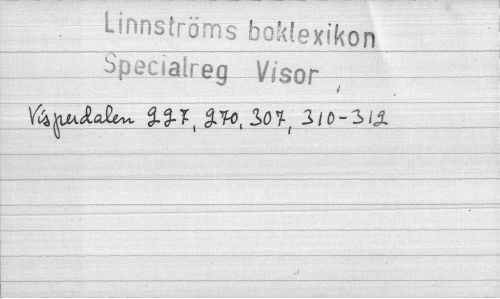 Linnströms boklexikon
Specialreg Visor
Visperdalen 227, 270, 307, 310-312